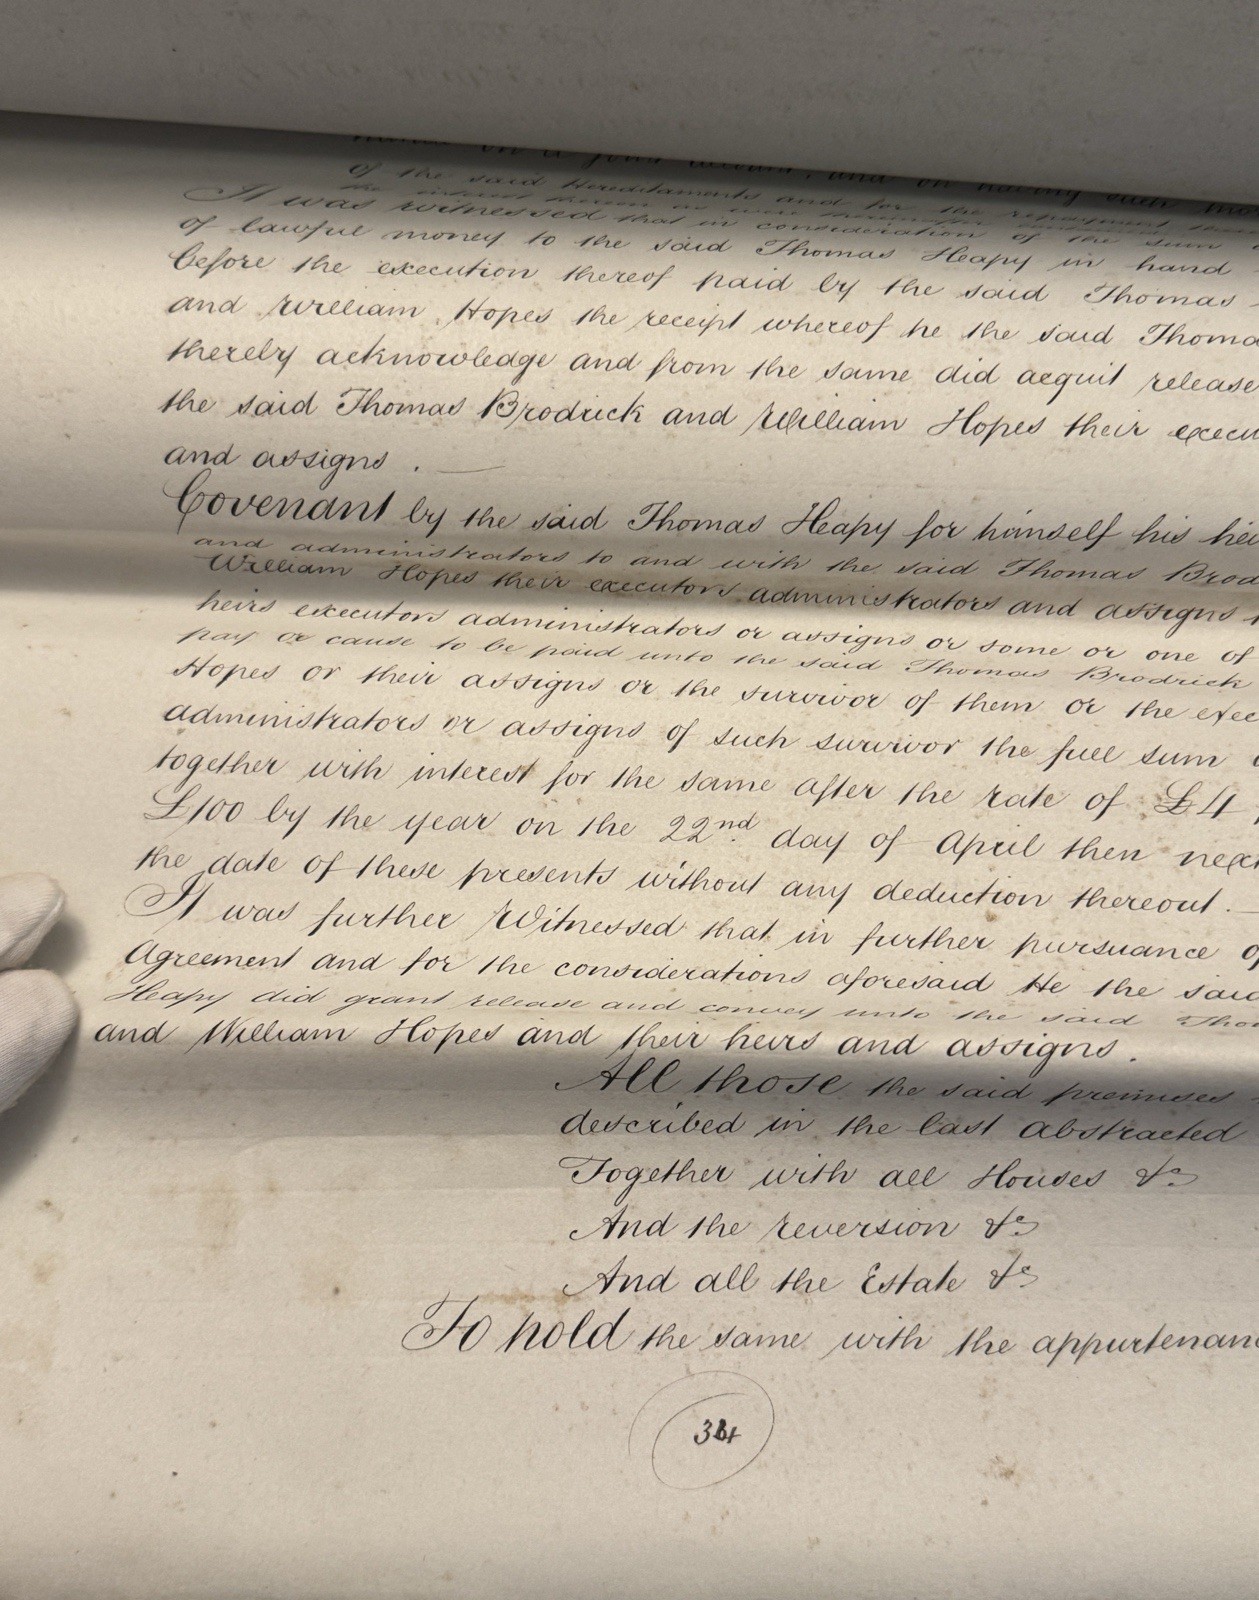 on a joint account, and on having such
of the said Hereditaments and for the repayment
the interest thereon
It was witnessed that in consideration of the sum
of lawful money to the said Thomas Heapy in hand
before the execution thereof paid by the said Thomas
and William Hopes the receipt whereof he the said
thereby acknowledge and from the same did acquit release
the said Thomas Brodrick and William Hopes their
and assigns.
Covenant by the said Thomas Heapy for himself his
and administrators to and with the said Thomas
William Hopes their executors administrators and assigns
heirs executors administrators or assigns or some or one of
pay or cause to be paid unto the said Thomas Brodrick
Hopes or their assigns or the survivor of them or the
administrators or assigns of such survivor the full sum
together with interest for the same after the rate of £4
£100 by the year on the 22nd day of April then next
the date of these presents without any deduction thereout.
It was further Witnessed that in further pursuance of
Agreement and for the considerations aforesaid He the said
Heapy did grant release and convey unto the said
and William Hopes and their heirs and assigns.
All those the said premises
described in the last abstracted
Together with all Houses &c
And the reversion &c
And all the Estate &c
To hold the same with the